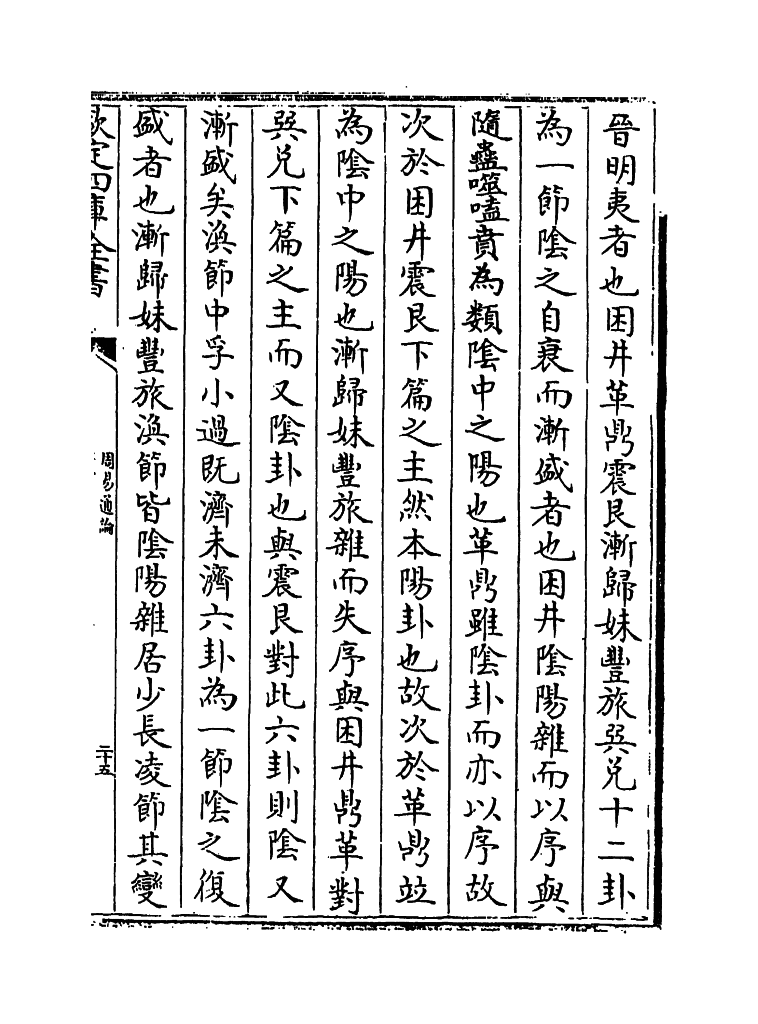 晉明夷者也困井革鼎震艮漸歸妹豐旅巽兌十二卦
為一節陰之自衰而漸盛者也困井陰陽雜而以序與
隨蠱噬嗑賁為類陰中之陽也革鼎雖陰卦而亦以序故
次於困井震艮下篇之主然本陽卦也故次於革鼎竝
為陰中之陽也漸歸妹豐旅雜而失序與困井鼎革對
巽兌下篇之主而又陰卦也與震艮對此六卦則陰又
漸盛矣渙節中孚小過旣濟未濟六卦為一節陰之復
盛者也漸歸妹豐旅渙節皆陰陽雜居少長凌節其變
欽定四庫全書
周易通論
二十五